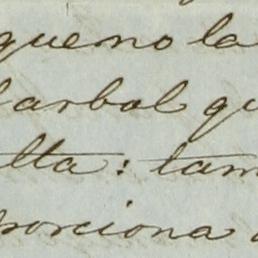 que no la
arbol qu
lta: tam
porciona